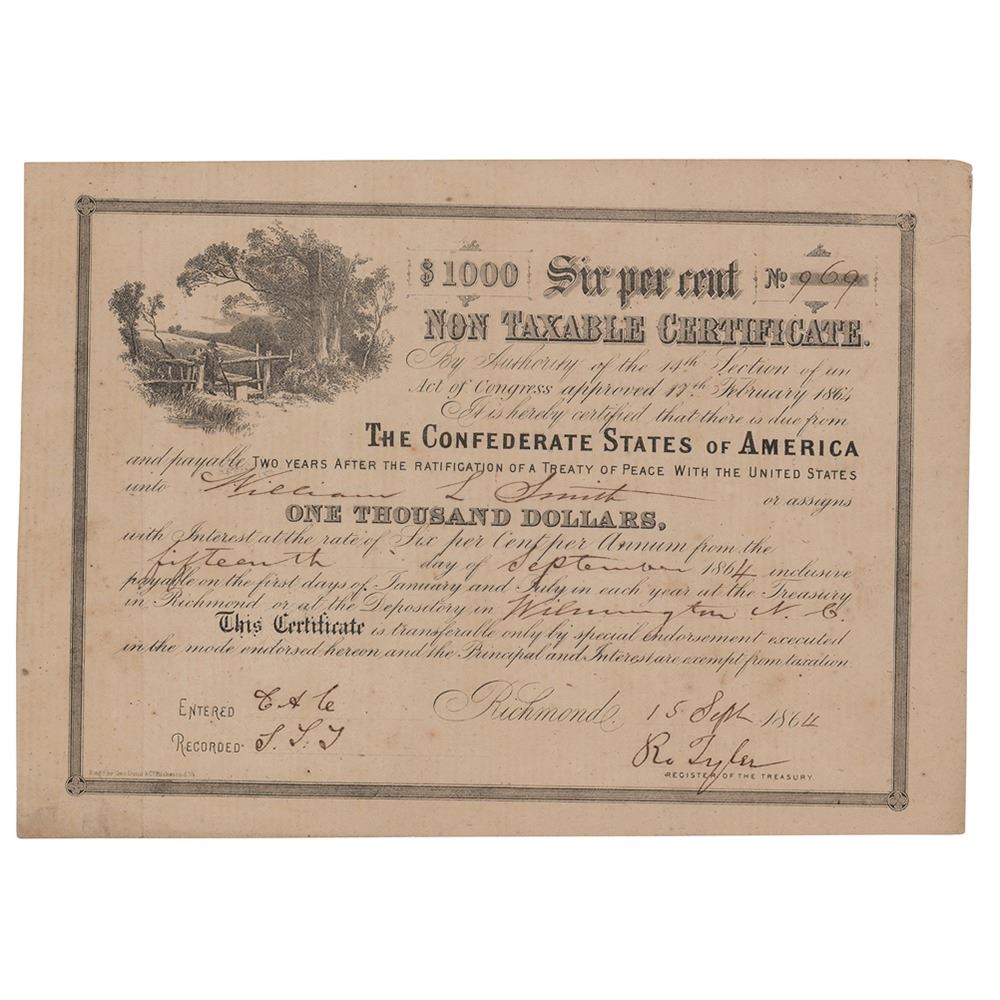 $1000 Six per cent No 969
NON TAXABLE CERTIFICATE.
By Authority of the 14th Section of an
Act of Congress approved 17th February 1864
It is hereby certified that there is due from
THE CONFEDERATE STATES OF AMERICA
and payable TWO YEARS AFTER THE RATIFICATION OF A TREATY OF PEACE WITH THE UNITED STATES
unto William L Smith or assigns
ONE THOUSAND DOLLARS,
with Interest at the rate of Six per Cent per Annum from the
fifteenth day of September 1864 inclusive
payable on the first days of January and July in each year at the Treasury
in Richmond or at the Depository in Wilmington N. C.
This Certificate is transferable only by special endorsement executed
in the mode endorsed hereon, and the Principal and Interest are exempt from taxation
ENTERED
Richmond, 15 Sept 1864
RECORDED
Ro Tyler
REGISTER OF THE TREASURY.